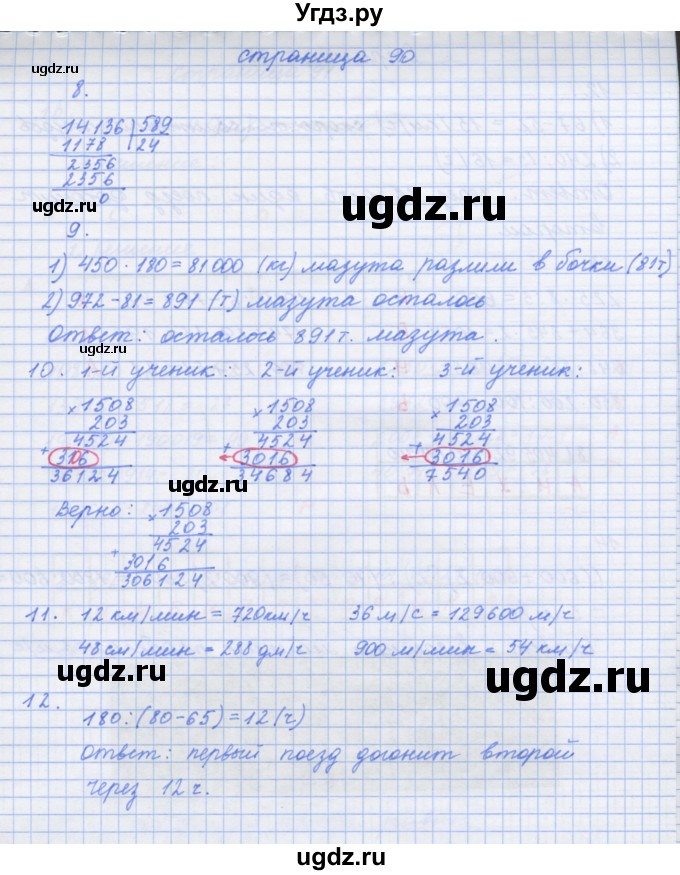 Угдз.ру
страница 90
ugdz.ru
8.
14136 | 589
1178 24
2356
2356
0
ugdz.ru
ugdz.ru
9.
1) 450 · 180 = 81000 (кг) мазута разлили в бочки (81т)
2) 972 - 81 = 891 (т) мазута осталось
Ответ: осталось 891т. мазута.
ugdz.ru
10. 1-й ученик: 2-й ученик: 3-й ученик:
×1508 ×1508 ×1508
203 203 203
4524 4524 4524
+ 3016 + 3016 + 3016
36124 34684 7540
Верно: ×1508
203
4524
+ 3016
306124
ugdz.ru
ugdz.ru
11. 12 км/мин = 720км/ч 36 м/с = 129600 м/ч
48 см/мин = 288 дм/ч 900 м/мин = 54 км/ч
ugdz.ru
ugdz.ru
12.
180 : (80-65) = 12 (ч)
Ответ: первый поезд догонит второй
через 12 ч.
ugdz.ru
ugdz.ru